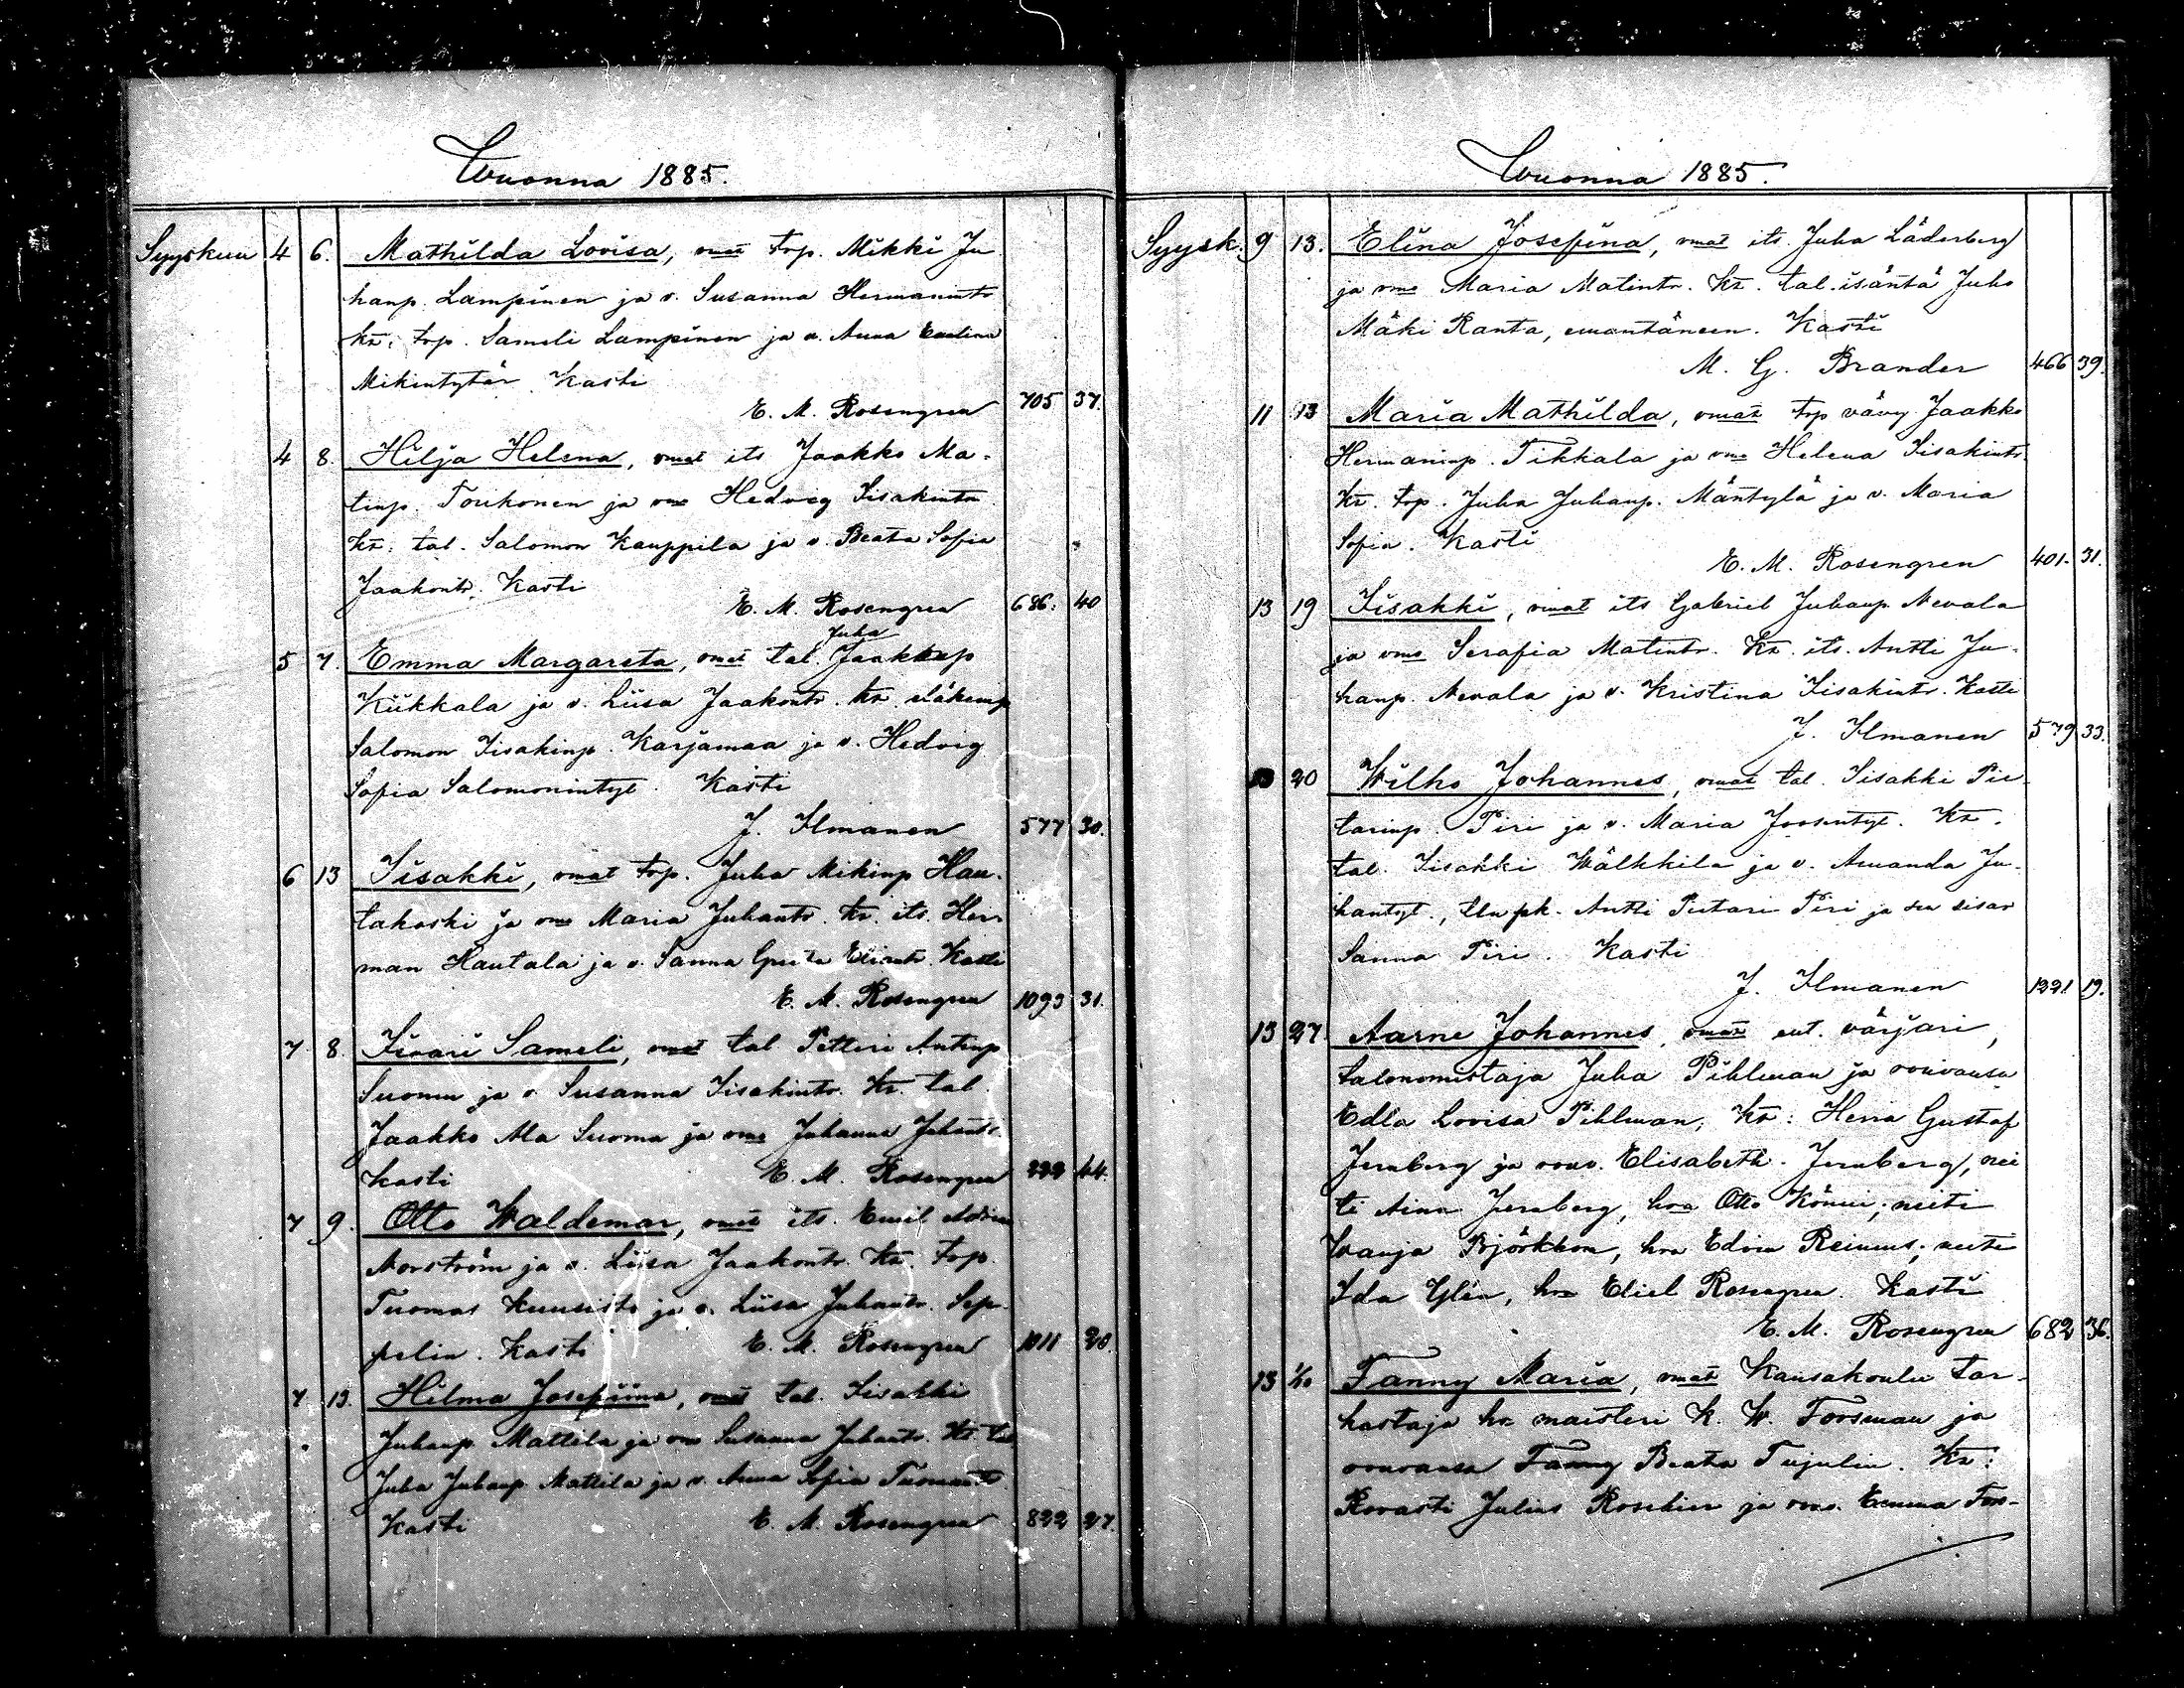 Wuonna 1885.
Syyskuu 4 6. Mathilda Lovisa, vmat trp. Mikki Ju
hanp. Lampinen ja v. Susanna Hermanintr
kr. trp. Sameli Lampinen ja v. Anna Eveliina
Mikintytär. Kasti
E. M. Rosengren 705 37.
4 8. Hilja Helena, vmat its Jaakko Ma-
tinp. Toukonen ja vmo Hedvig Iisakintr
kr. tal. Salomon Kauppila ja v. Beata Sofia
Jaakontr. Kasti
E. M. Rosengren 686. 40
Juha
5 7. Emma Margareta, vmat tal. Jaakkop
Kiikkala ja v. Liisa Jaakontr. kr.
Salomon Iisakinp. Karjamaa ja v. Hedvig
Sofia Salomonintyt. Kasti
J. Ilmanen 577 30.
6 13 Iisakki, vmat trp. Juha Mikinp Hau-
takoski ja vmo Maria Juhantr. kr. its. Her-
man Hautala ja v. Sanna Greta Kasti
E. M. Rosengren 1093 31.
7 8. Iivari Sameli, vmat tal Petteri Antinp
Suomu ja v. Susanna Iisakintr. Kr. tal.
Jaakko Ala Suomu ja vmo Johanna Juhantr.
Kasti E. M. Rosengren 222 44.
7 9. Otto Waldemar, vmat its. Emil
Norström ja v. Liisa Jaakontr. Kr. trp.
Tuomas Kuusisto ja v. Liisa Juhantr. Sep-
pelin. Kasti E. M. Rosengren 1011 20.
7 13. Hilma Josefiina, vmat tal. Iisakki
Juhanp. Mattila ja vmo Susanna Juhantr. Kr. tal
Juha Juhanp Mattila ja v. Anna Sofia Tuomantr.
Kasti E. M. Rosengren 822 27.
Wuonna 1885.
Syysk. 9 13. Elina Josefina, vmat its. Juha Läderberg
ja vmo Maria Matintr. Kr. tal. isäntä Juho
Mäki Ranta, emäntäneen. Kasti
M. G. Brander 466 39.
11 13 Maria Mathilda, vmat trp vävy Jaakko
Hermaninp. Tikkala ja vmo Helena Iisakintr.
Kr. trp. Juha Juhanp. Mäntylä ja v. Maria
Sofia. Kasti
E. M. Rosengren 401. 31.
13 19 Iisakki, vmat its Gabriel Juhanp Nevala
ja vmo Serafia Matintr. Kr. its. Antti Ju-
hanp. Nevala ja v. Kristina Iisakintr. Kasti
J. Ilmanen 579 33.
13 20 Wilho Johannes, vmat tal. Iisakki Pie-
tarinp. Piri ja v. Maria Joosentyt. Kr.
tal. Iisakki Wälkkilä ja v. Amanda Ju-
hantyt., Antti Pietari Piri ja sisar
Sanna Piri. Kasti
J. Ilmanen 1221 19.
13 27 Aarne Johannes, vmat ent. värjäri,
talonomistaja Juha Pihlman ja rouvansa
Edla Lovisa Pihlman, Kr: Herra Gustaf
Jernberg ja rouv. Elisabeth Jernberg, nei
ti Aina Jernberg, hra Otto Könni, neiti
Wanja Björkbom, hra Edvin Reinius, neiti
Ida Ylén, hra Eliel Rosengren. Kasti
E. M. Rosengren 682 36.
13 1/10 Fanny Maria, vmat Kansakoulu tar-
kastaja hr maisteri K. W. Forsman ja
rouvansa Fanny Beata Tujulin. Kr:
Rovasti Julius Roschier ja rouv. Emma Fors-